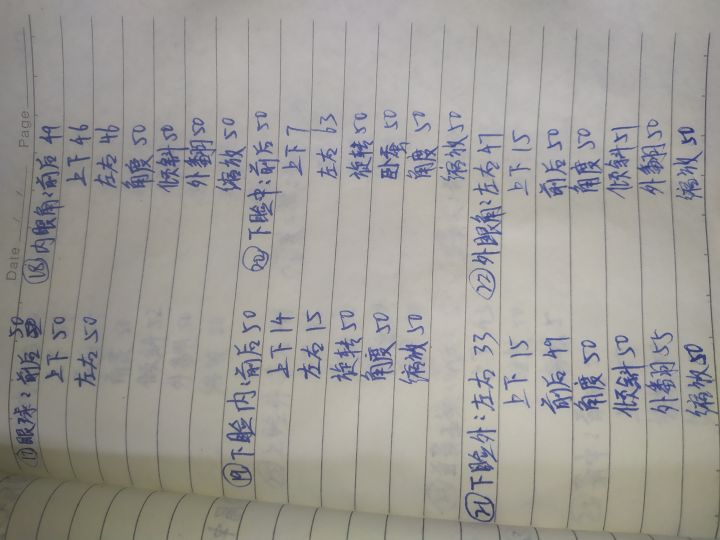 Date
Page
⑰眼球：前后 50
上下 50
左右 50
⑱内眼角：前后 49
上下 46
左右 46
角度 50
倾斜 50
外翻 50
缩放 50
⑲下睑内：前后 50
上下 14
左右 15
旋转 50
角度 50
缩放 50
⑳下睑中：前后 50
上下 7
左右 63
旋转 50
卧蚕 50
角度 50
缩放 50
㉑下睑外：左右 33
上下 15
前后 49
角度 50
倾斜 50
外翻 55
缩放 50
㉒外眼角：左右 47
上下 15
前后 50
角度 50
倾斜 51
外翻 50
缩放 50